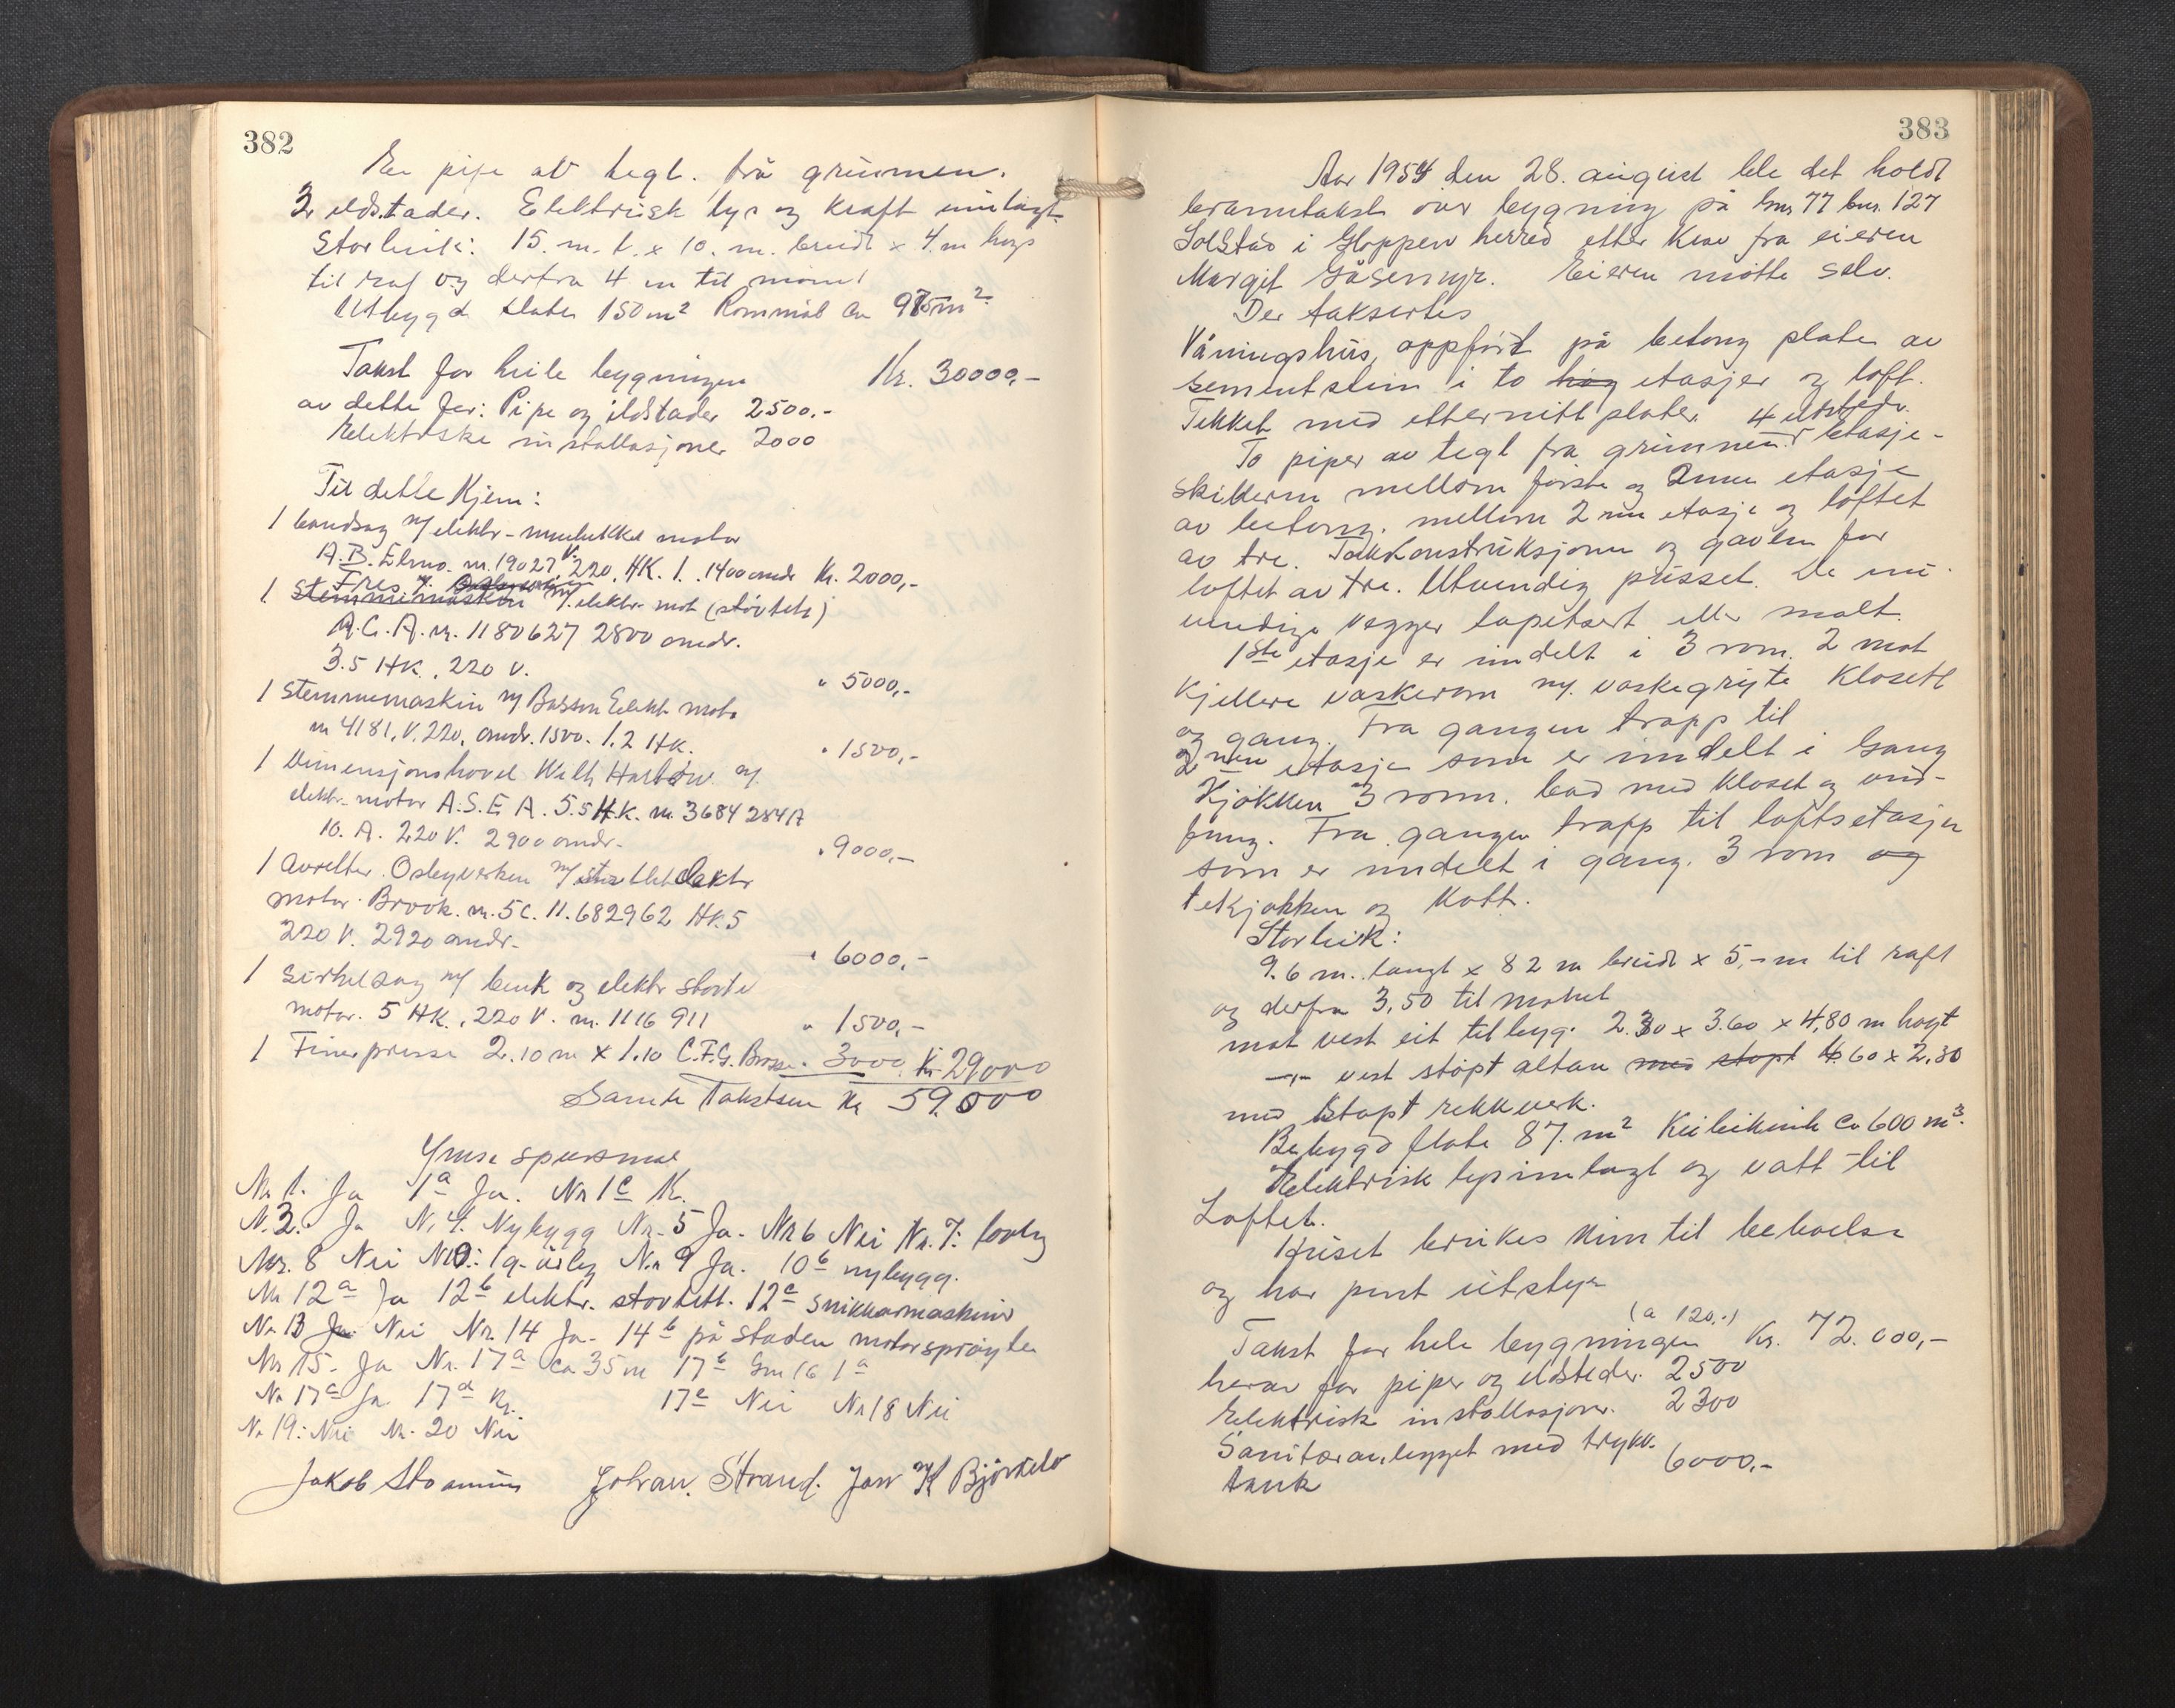 382
En pipe av tegl. frå grunnen.
2 eldstader. Elektrisk lys og kraft innlagt
Storleik: 15. m. l. x 10. m. breidt x 4. m høgt
til raf og derfra 4 m til møne
Utbygd flate 150 m² Rommål ca 975 m²
Takst for heile bygningen Kr. 30000,-
av dette for: Pipe og ildstader 2500.-
Elektriske installasjoner 2000
Til dette kjem:
1 bandsag m/ elektr. motor
A.B. Elmo. nr. 19027 V. 220. HK. 1. 1400 omdr Kr. 2000,-
1 Fres m/. elektr. mot (støvtett)
A.C.A. nr. 1180627 2800 omdr.
3.5 HK. 220 V. " 5000,-
1 Stemmemaskin m/ Elektr. motor
nr 4181. V. 220, omdr. 1500. 1.2 HK. " 1500,-
1 Dimensjonshøvel m/
elektr. motor A.S.E.A. 5.5 H.K. nr. 3684284A
10. A. 220 V. 2900 omdr. " 9000,-
1 Avretter Osbyverken m/ elektr
motor. Brook. nr. 5C. 11.682962 HK. 5
220 V. 2920 omdr. " 6000,-
1 Sirkelsag m/ benk og elektr støvte
motor. 5 HK., 220 V. nr. 1116 911 " 1500,-
1 Finerpresse 2.10 m x 1.10 C.F.G. 3000 Kr 29000
Samla Takstsum Kr 59.000
Ymse spursmål
Nr. 1. Ja 1a Ja. Nr 1c K.
Nr. 3. Ja Nr 4. Nybygg Nr. 5 Ja. Nr 6 Nei Nr. 7: lovleg
Nr. 8 Nei Nr 9 Ja. 10b nybygg.
Nr 12a Ja 12b elektr. støvtett. 12c snikkarmaskiner
Nr 13 Nei Nr. 14 Ja. 14b på staden motorsprøyte
Nr 15. Ja Nr. 17a ca 35 m 17b 1a
Nr 17c Ja 17d K. 17e Nei Nr 18 Nei
Nr 19: Nei Nr. 20 Nei
Jakob Johan. Strand. Jon K Bjørkelo
383
Aar 1954 den 28. august ble det holdt
branntakst over bygning på bnr. 127
Solstad i Gloppen herred etter krav fra eieren
Margit Gåsemyr. Eieren møtte selv.
Der taksertes
Våningshus, oppført på betong plate av
sementstein i to høg etasjer og loft.
Tekket med etternittplater. 4 ildsteder.
To piper av tegl fra grunnen. Etasje-
skillerne mellom første og 2nen etasje
av betong. mellom 2nen etasje og loftet
av tre. Takkonstruksjonen og gavlen for
loftet av tre. Utvendig pusset. De inn-
vendige vegger tapetsert eller malt.
1ste etasje er inndelt i 3 rom. 2 mat
kjellere vaskerom m/. vaskegryte Klosett
og gang. Fra gangen trapp til
2nen etasje som er inndelt i Gang
Kjøkken 3 rom. bad med kloset og vind-
fang. Fra gangen trapp til loftsetasjen
som er inndelt i gang. 3 rom og
tekjøkken og kott.
Storleik:
9.6 m. langt x 8 2 m breidt x 5,- m til raft
og derfra 3,50 til mønet
mot vest eit tilbygg. 2.30 x 3.60 x 4,80 m høgt
-"- vest støpt altan med støpt 4.60 x 2,30
med støpt rekkverk.
Bebygd flate 87. m² Kubikinh ca 600 m³.
Elektrisk lys innlagt og vatt til
Loftet.
Huset brukes kun til beboelse
og har pent utstyr
(a 120.-)
Takst for hele bygningen Kr. 72.000,-
herav for piper og ildsteder. 2500
Elektrisk installasjoner. 2300
Sanitæranlegget med trykk-
tank 6000.-